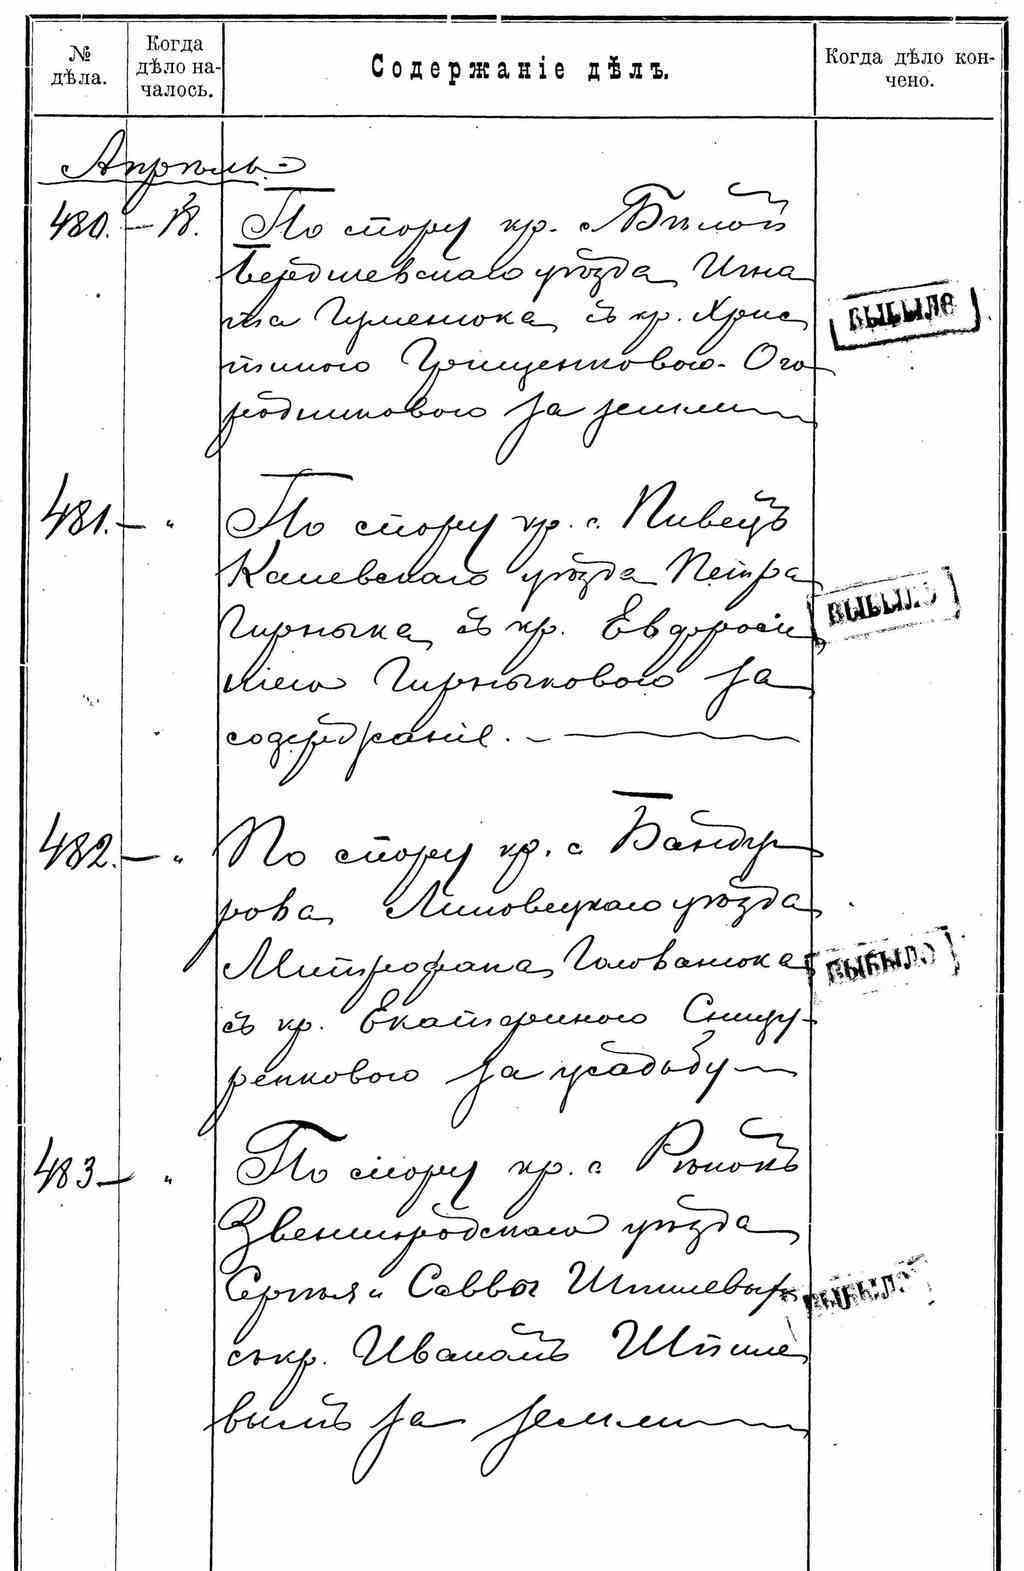 № дѣла.
Когда дѣло началось.
Содержаніе дѣлъ.
Когда дѣло кончено.
Апрѣль
480. — 18. По спору кр. с. Бѣлой
Бердичевскаго уѣзда Игна
та Гуменюка съ кр. Хрис
тиною Грищенковою-Ого
родниковою за землю
ВЫБЫЛО
481. — " По спору кр. с. Пивецъ
Каневскаго уѣзда Петра
Гирныка съ кр. Евфроси
ніею Гирныковою за
содержаніе. —
ВЫБЫЛО
482. — " По спору кр. с. Банду
рова Липовецкаго уѣзда
Митрофана Голованюка
съ кр. Екатериною Сницу-
ренковою за усадьбу
ВЫБЫЛО
483 — " По спору кр. с.
Звенигородскаго уѣзда
Сергѣя и Саввы Шпилевыхъ
съ кр. Иваномъ Шпиле
вымъ за землю
ВЫБЫЛО